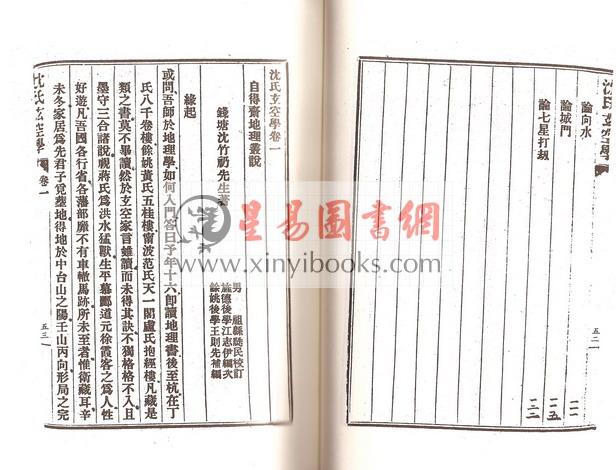 沈氏玄空學
論向水 一一
論城門 一五
論七星打刧 二二
五二
沈氏玄空學卷一
自得齋地理叢說
錢塘沈竹礽先生著
男 祖緜瓞民校訂
旌德後學江志伊編次
餘姚後學王則先補編
緣起
或問吾師於地理學如何入門答曰予年十六卽讀地理書後至杭在丁
氏八千卷樓餘姚黃氏五桂樓甯波范氏天一閣盧氏抱經樓凡藏是
類之書莫不畢讀然於玄空家言雖讀而未得其訣不獨格格不入且
墨守三合諸說視蔣氏爲洪水猛獸生平慕酈道元徐霞客之爲人性
好遊凡吾國各行省各藩部靡不有車轍馬跡所未至者惟衛藏耳辛
未冬家居爲先君子覓塟地得地於中台山之陽壬山丙向形局之完
沈氏玄空學 卷一
五三
星易圖書網
www.xinyibooks.com